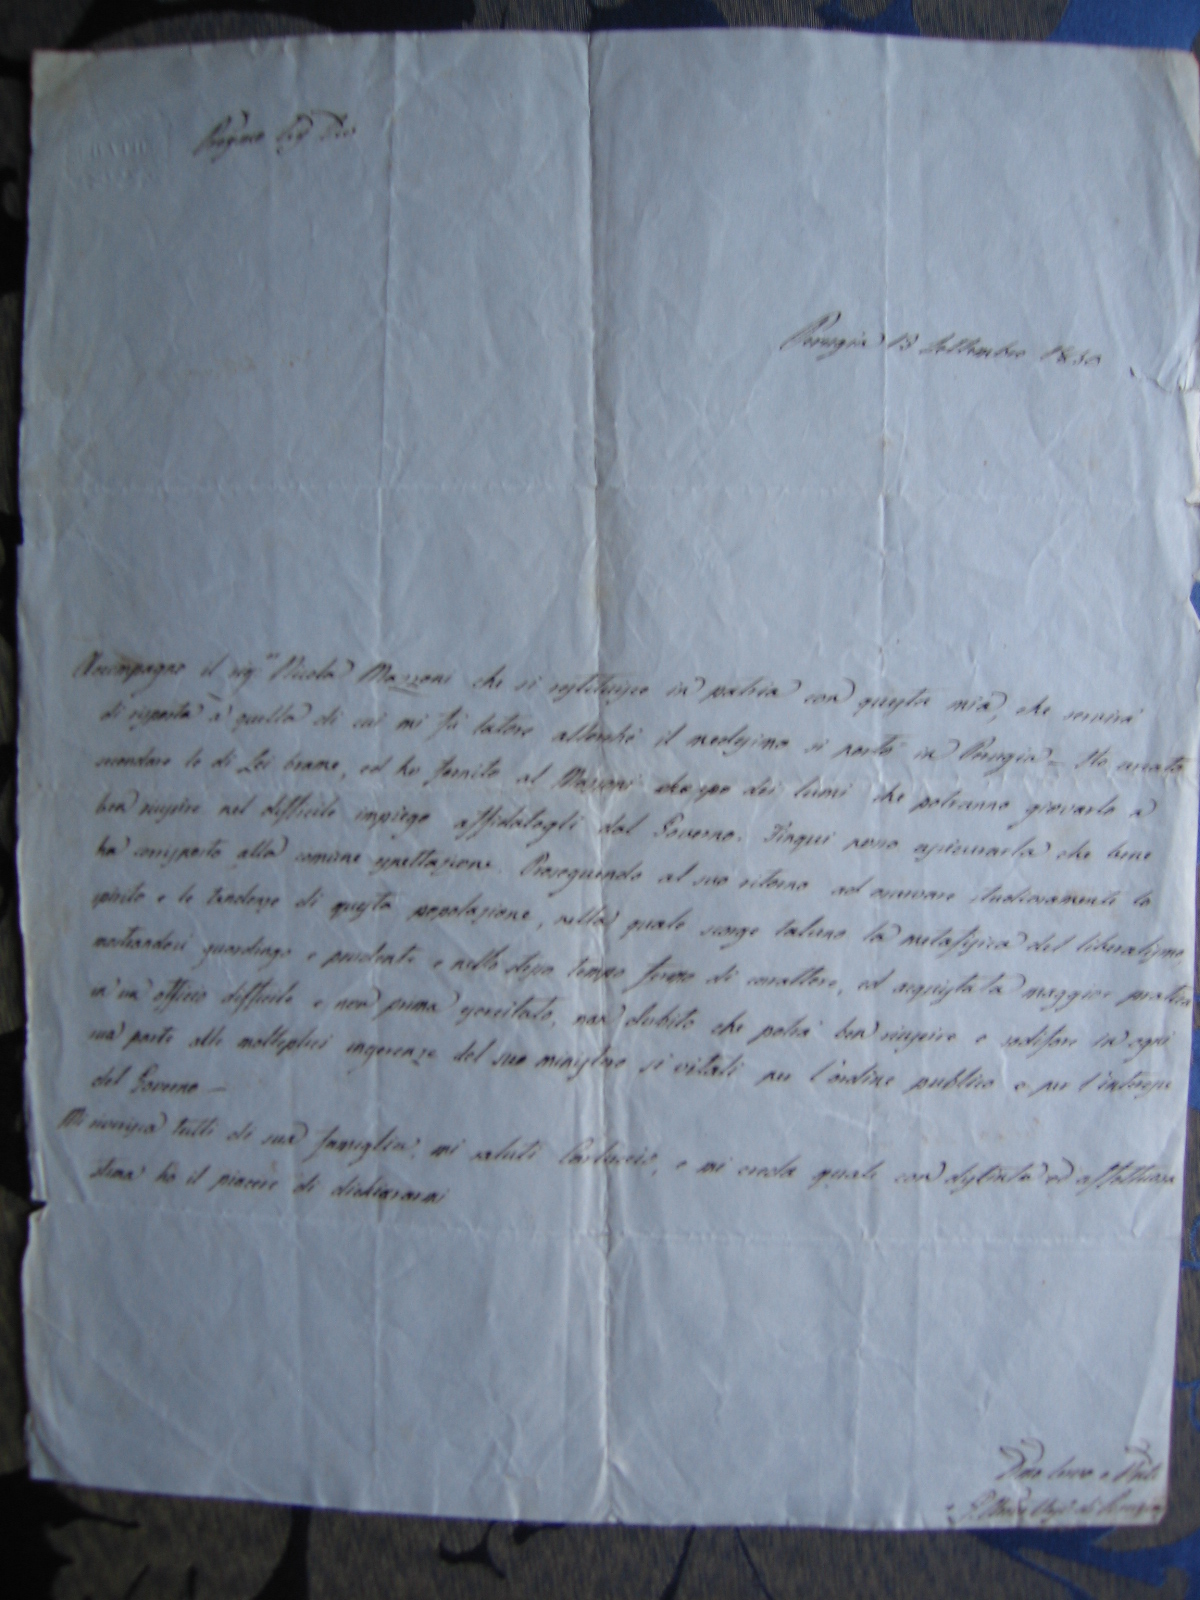 Pregmo Sig. Dre
Perugia 13 Settembre 1850
Accompagno il sig.r Nicola Mazzoni che si restituisce in patria con questa mia, che servirà
di risposta a quella di cui mi fu latore allorchè il medesimo si portò in Perugia = Ho cercato
secondare le di Lei brame, ed ho fornito al Mazzoni dei lumi che potranno giovarlo a
ben riuscire nel difficile impiego affidatogli dal Governo. Finqui posso assicurarla che bene
ha corrisposto alla comune aspettazione. Proseguendo al suo ritorno ad osservare studiosamente lo
spirito e le tendenze di questa popolazione, nella quale scorge taluno la metafisica del liberalismo
mostrandosi guardingo e prudente e nello stesso tempo fermo di carattere, ed acquistata maggior pratica
in un officio difficile e non prima esercitato, non dubito che potrà ben riuscire e sodisfare in ogni
sua parte alle molteplici ingerenze del suo ministero sì vitali per l'ordine pubblico e per l'interesse
del Governo —
Mi riverisca tutti di sua famiglia, mi saluti e mi creda quale con distinta ed affettuosa
stima ho il piacere di dichiararmi
Dmo Servo e
di Perugia